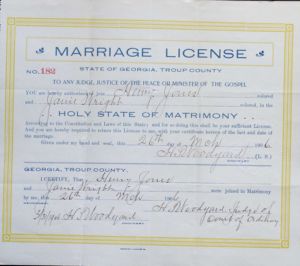 MARRIAGE LICENSE
STATE OF GEORGIA, TROUP COUNTY
No. 182
TO ANY JUDGE, JUSTICE OF THE PEACE OR MINISTER OF THE GOSPEL
You are hereby authorized to join Henry Jones colored
and Janie Wright colored, in the
HOLY STATE OF MATRIMONY
According to the Constitution and Laws of this State; and for so doing this shall be your sufficient License. And
you are hereby required to return this License to me with your certificate hereon of the fact and date of
the marriage.
Given under my hand and seal, this 26th day of Mch 6
H. T. Woodyard (L. S.)
GEORGIA, TROUP COUNTY.
I CERTIFY, That Henry Jones
and Janie Wright were joined in Matrimony
by me, this 26 day of Mch 6
H. T. Woodyard Judge of
H. T. Woodyard Court of Ordinary